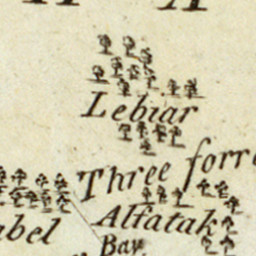 Lebiar
Three forre
Alfatak
abel
Bay